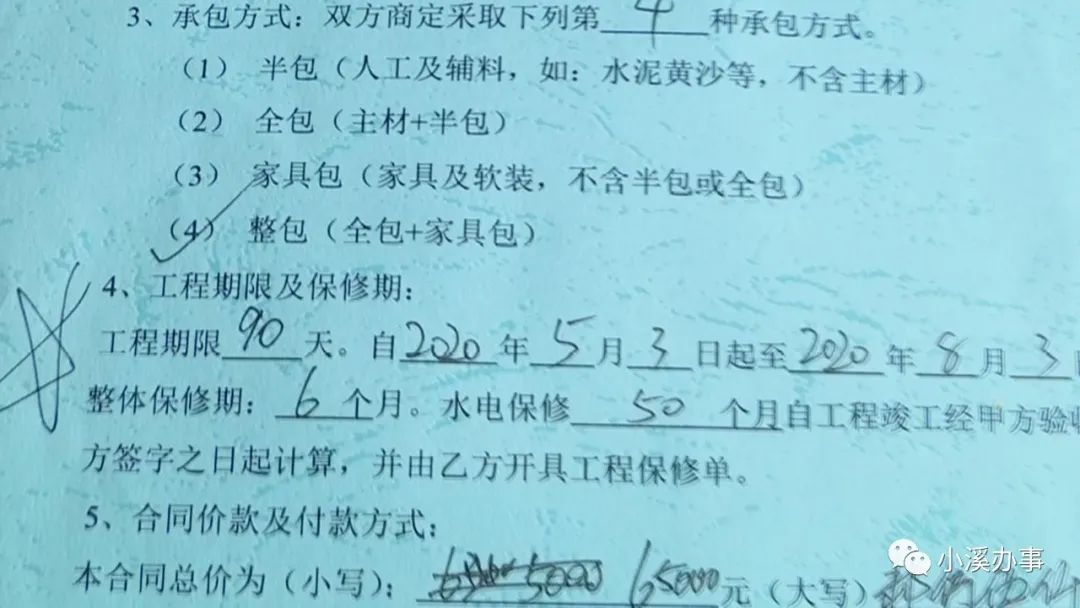 3、承包方式：双方商定采取下列第4种承包方式。
（1） 半包（人工及辅料，如：水泥黄沙等，不含主材）
（2） 全包（主材+半包）
（3） 家具包（家具及软装，不含半包或全包）
（4） 整包（全包+家具包）
4、工程期限及保修期：
工程期限90天。自2020年5月3日起至2020年8月3日
整体保修期：6个月。水电保修50个月自工程竣工经甲方验收
方签字之日起计算，并由乙方开具工程保修单。
5、合同价款及付款方式：
本合同总价为（小写）：65000元（大写）
小溪办事